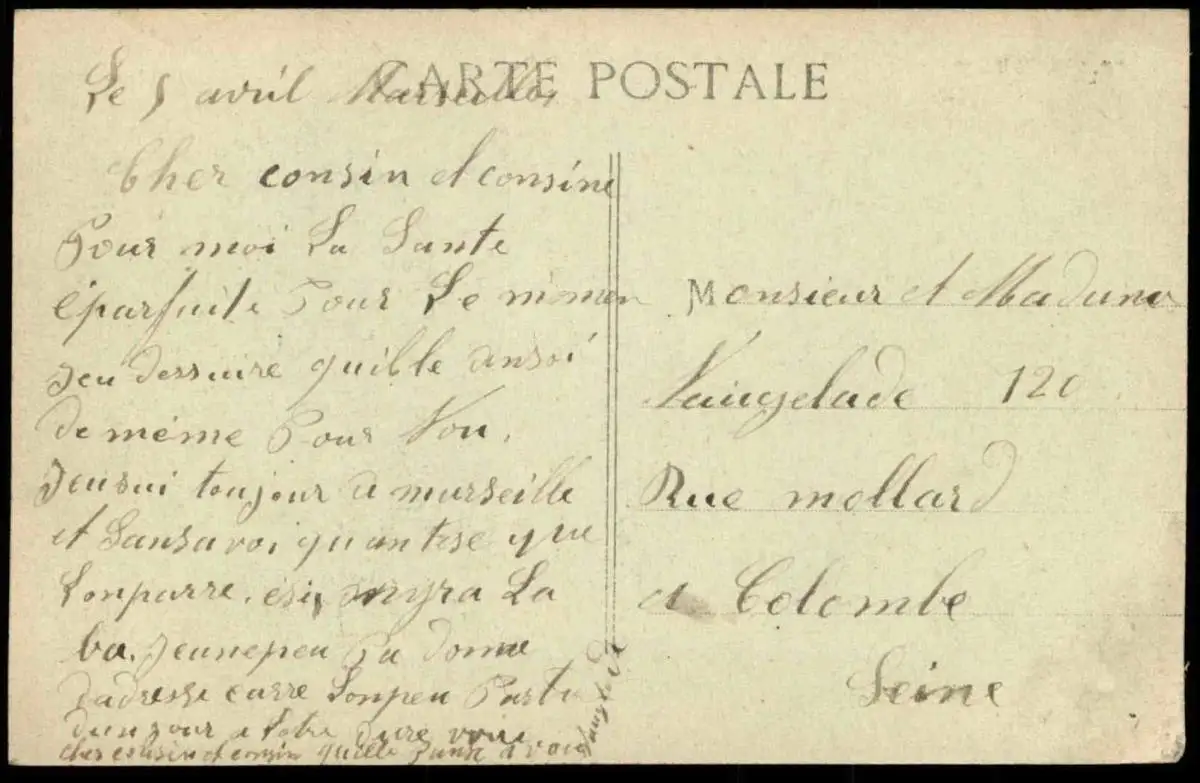 CARTE POSTALE
Le 5 avril Marseille
Cher consin et consine
Pour moi La Sante
éparfaite Pour Le momen
Jeu dessuire quille ansoi
de même Pour Vou.
Jensui toujour a marseille
et Sansavoi quantese que
Lonparre. ési onyra La
ba. Jeunepeu Pa donne
dadresse carre Lonpeu Parti
dun jour a Lotre
cher cousin et consin quille panse a vou
Monsieur et Madame
Vaugelade 120
Rue mollard
a Colombe
Seine
Vaugelade